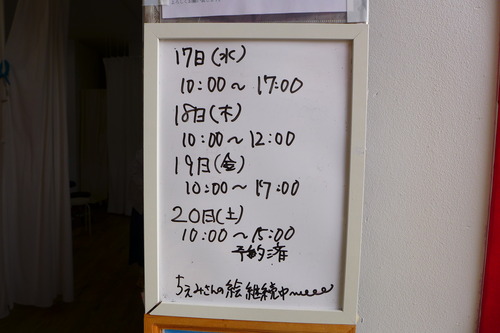 17日(水)
10:00〜17:00
18日(木)
10:00〜12:00
19日(金)
10:00〜17:00
20日(土)
10:00〜15:00
予約済
ちえみさんの絵継続中